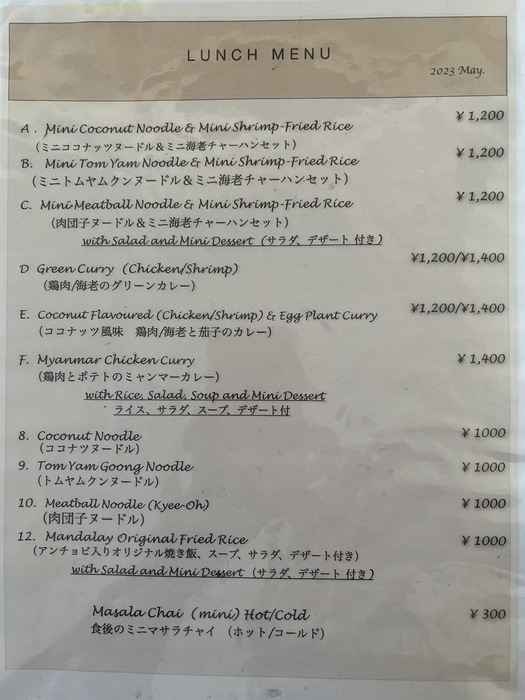 LUNCH MENU
2023 May.
A. Mini Coconut Noodle & Mini Shrimp-Fried Rice ¥1,200
(ミニココナッツヌードル＆ミニ海老チャーハンセット)
B. Mini Tom Yam Noodle & Mini Shrimp-Fried Rice ¥1,200
(ミニトムヤムクンヌードル＆ミニ海老チャーハンセット)
C. Mini Meatball Noodle & Mini Shrimp-Fried Rice ¥1,200
(肉団子ヌードル＆ミニ海老チャーハンセット)
with Salad and Mini Dessert (サラダ、デザート 付き)
D Green Curry (Chicken/Shrimp) ¥1,200/¥1,400
(鶏肉/海老のグリーンカレー)
E. Coconut Flavoured (Chicken/Shrimp) & Egg Plant Curry ¥1,200/¥1,400
(ココナッツ風味 鶏肉/海老と茄子のカレー)
F. Myanmar Chicken Curry ¥1,400
(鶏肉とポテトのミャンマーカレー)
with Rice, Salad, Soup and Mini Dessert
ライス、サラダ、スープ、デザート付
8. Coconut Noodle ¥1000
(ココナツヌードル)
9. Tom Yam Goong Noodle ¥1000
(トムヤムクンヌードル)
10. Meatball Noodle (Kyee-Oh) ¥1000
(肉団子ヌードル)
12. Mandalay Original Fried Rice ¥1000
(アンチョビ入りオリジナル焼き飯、スープ、サラダ、デザート付き)
with Salad and Mini Dessert (サラダ、デザート 付き)
Masala Chai (mini) Hot/Cold ¥300
食後のミニマサラチャイ (ホット/コールド)